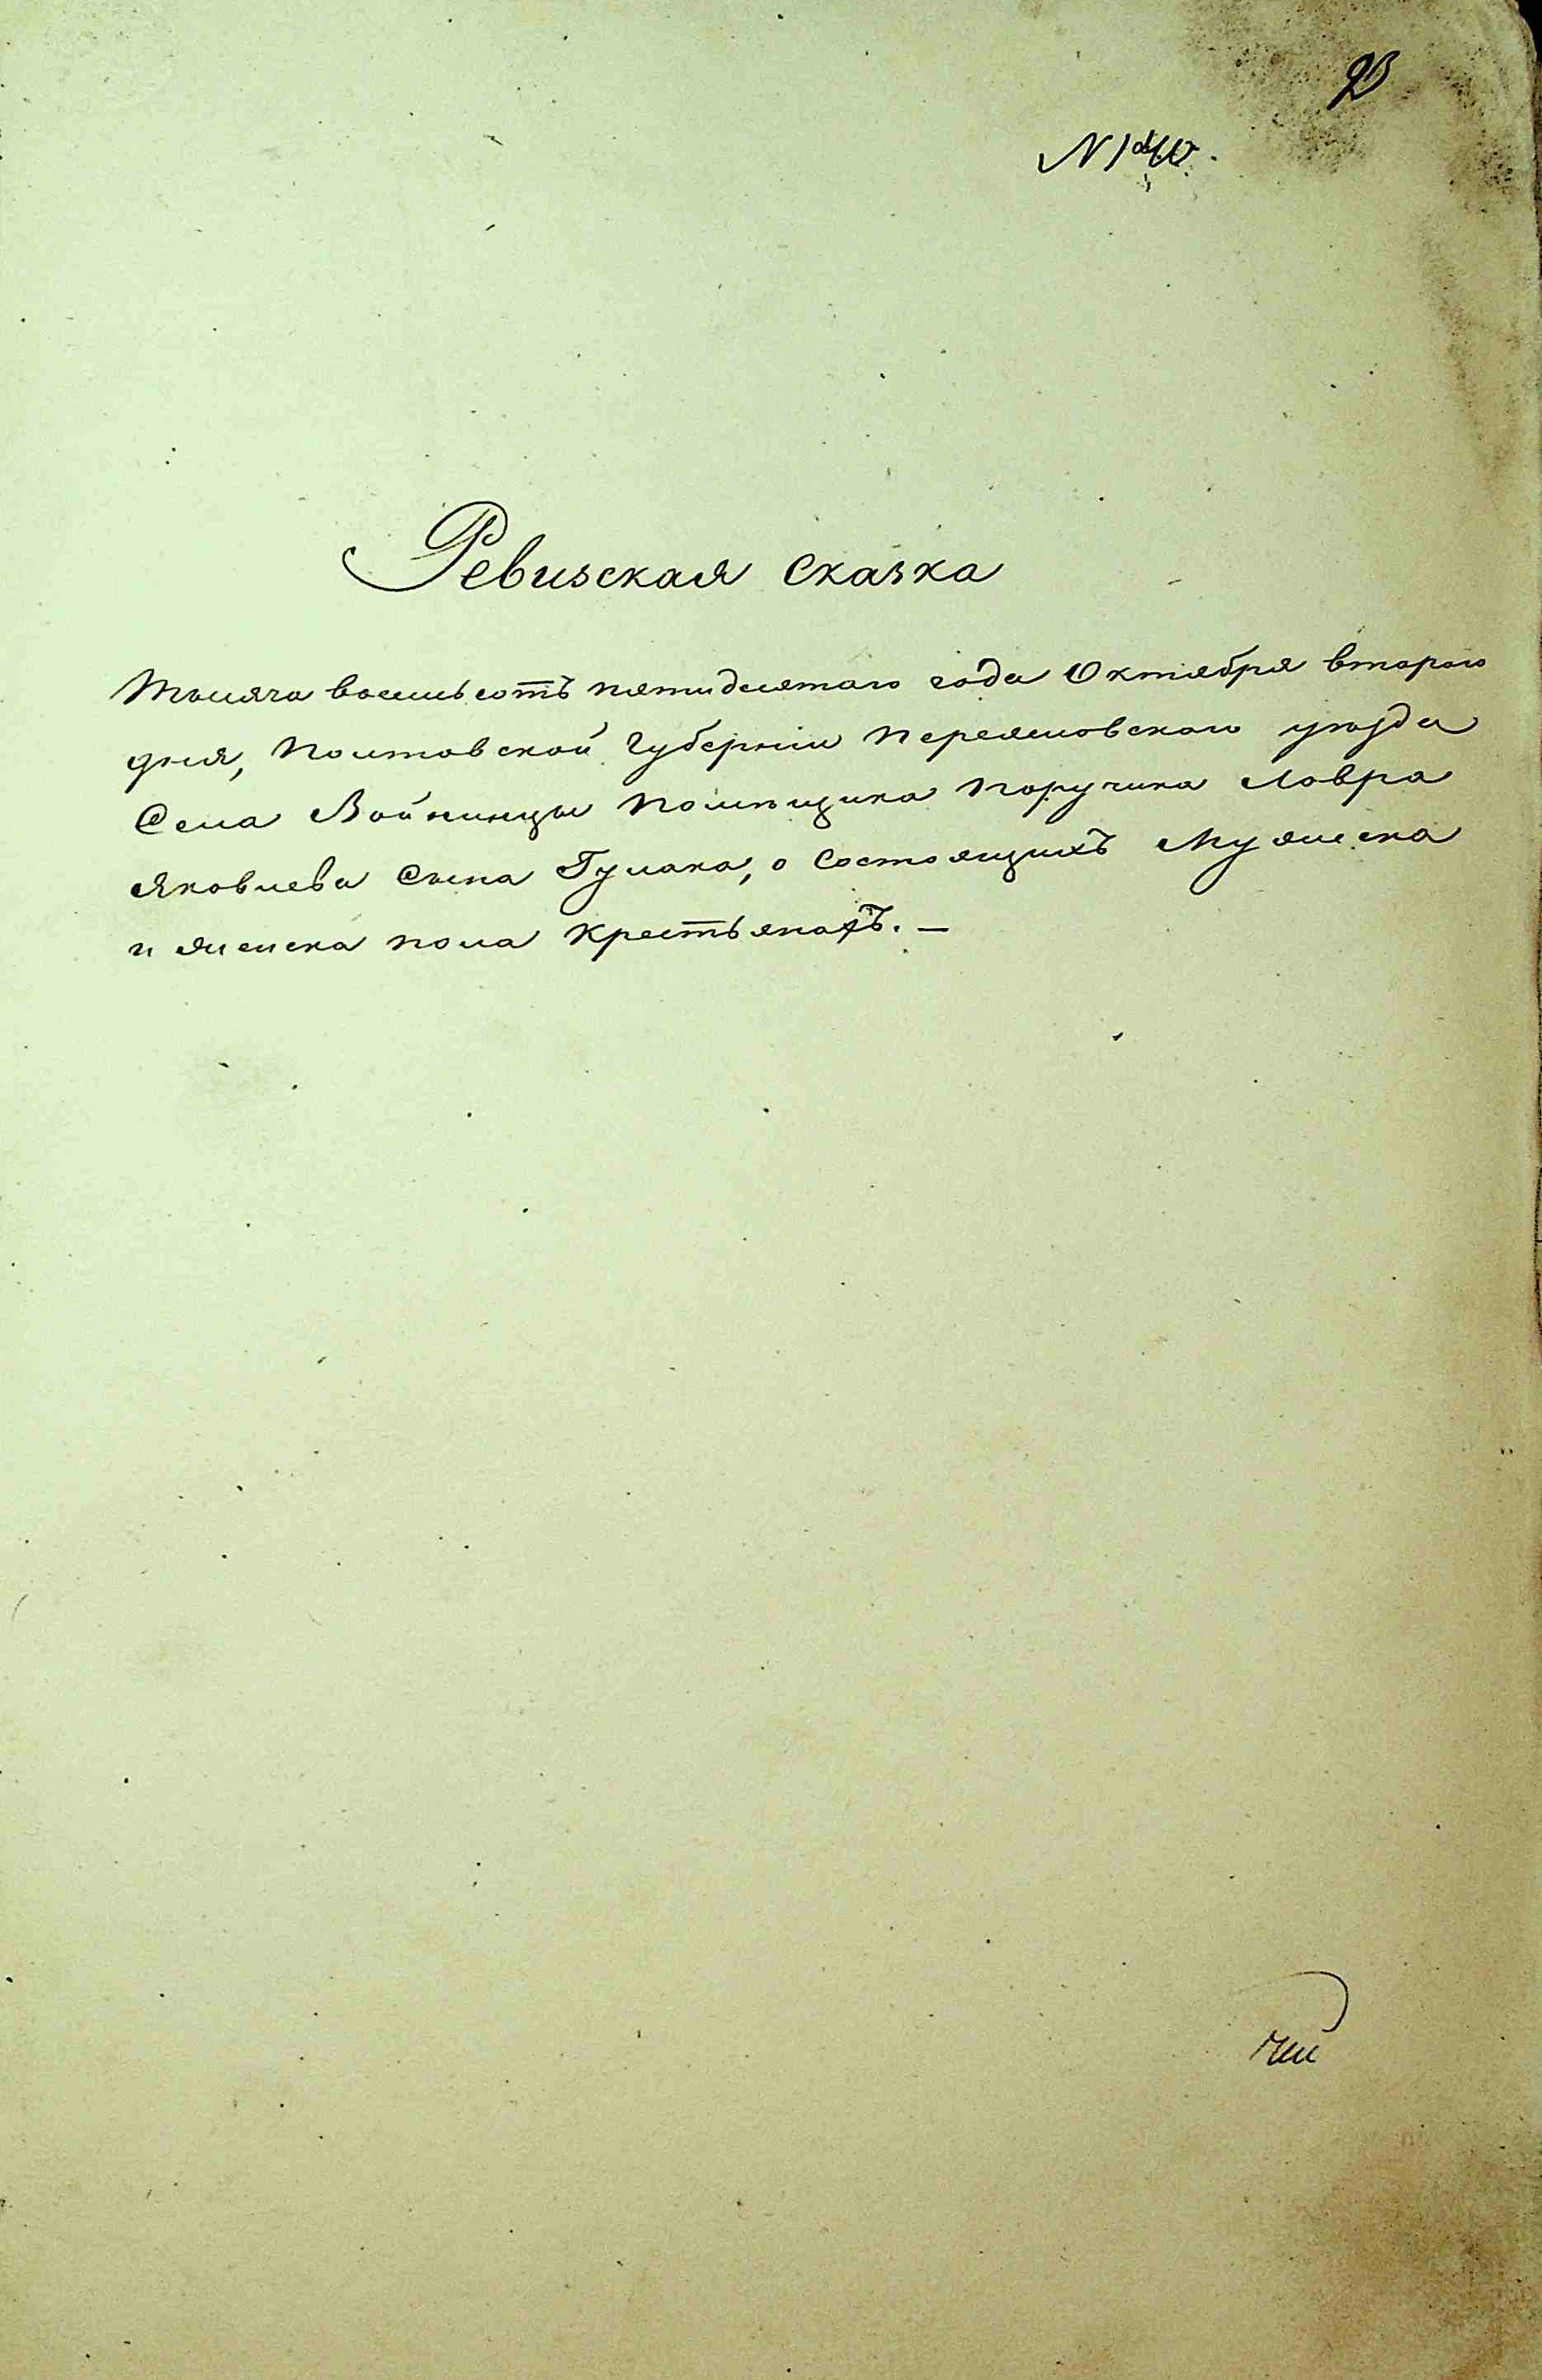 Ревизская сказка
Тысяча восемьсотъ пятидесятаго года Октября втораго
дня, Полтавской Губерніи Переяславскаго уѣзда
Села Войнинцы Помѣщика Поручика Лавра
Яковлева Сына Гулака, о Состоящихъ Мужеска
и женска пола крестьянахъ. —